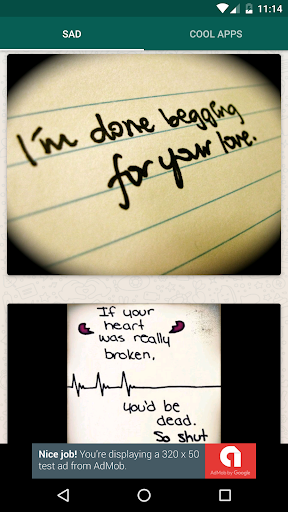 11:14
SAD
COOL APPS
I'm done begging
for your love.
If your
heart
was really
broken,
you'd be
dead.
So shut
Nice job! You're displaying a 320 x 50
test ad from AdMob.
AdMob by Google